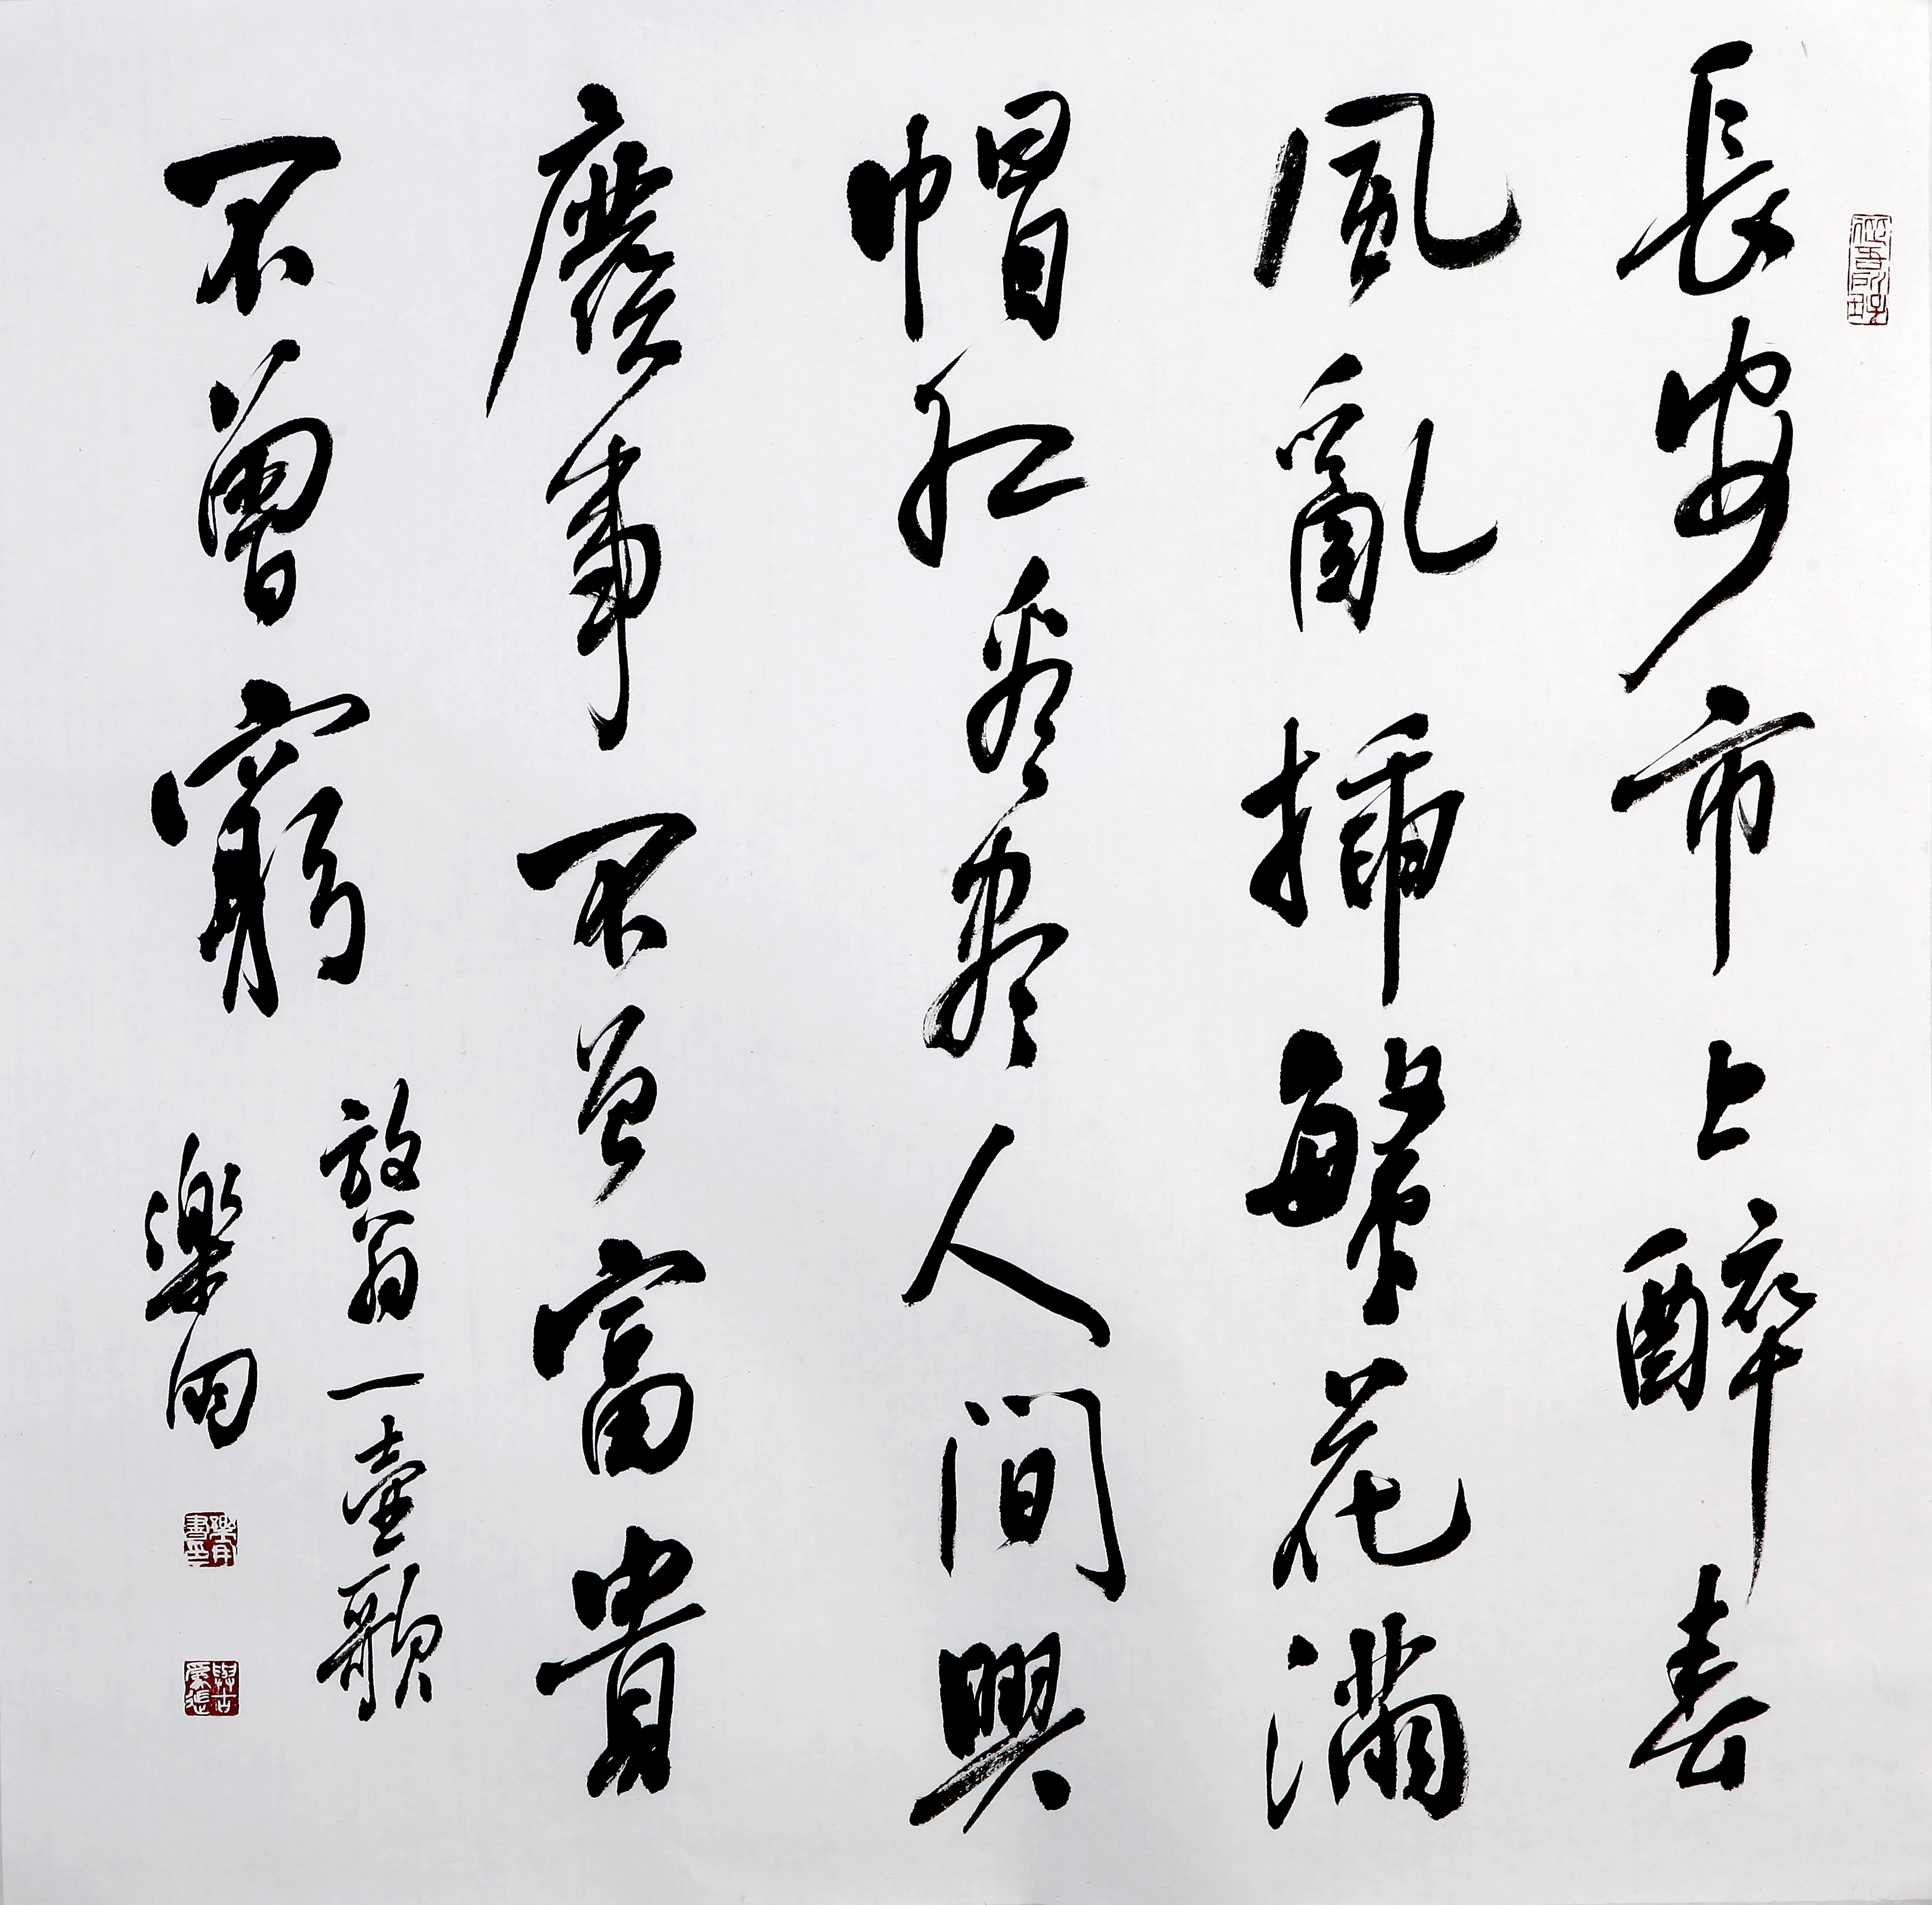 長安市上醉春
風亂插繁花滿
帽紅看盡人間興
廢事不曾富貴
不曾窮
放翁一壺歌
樂